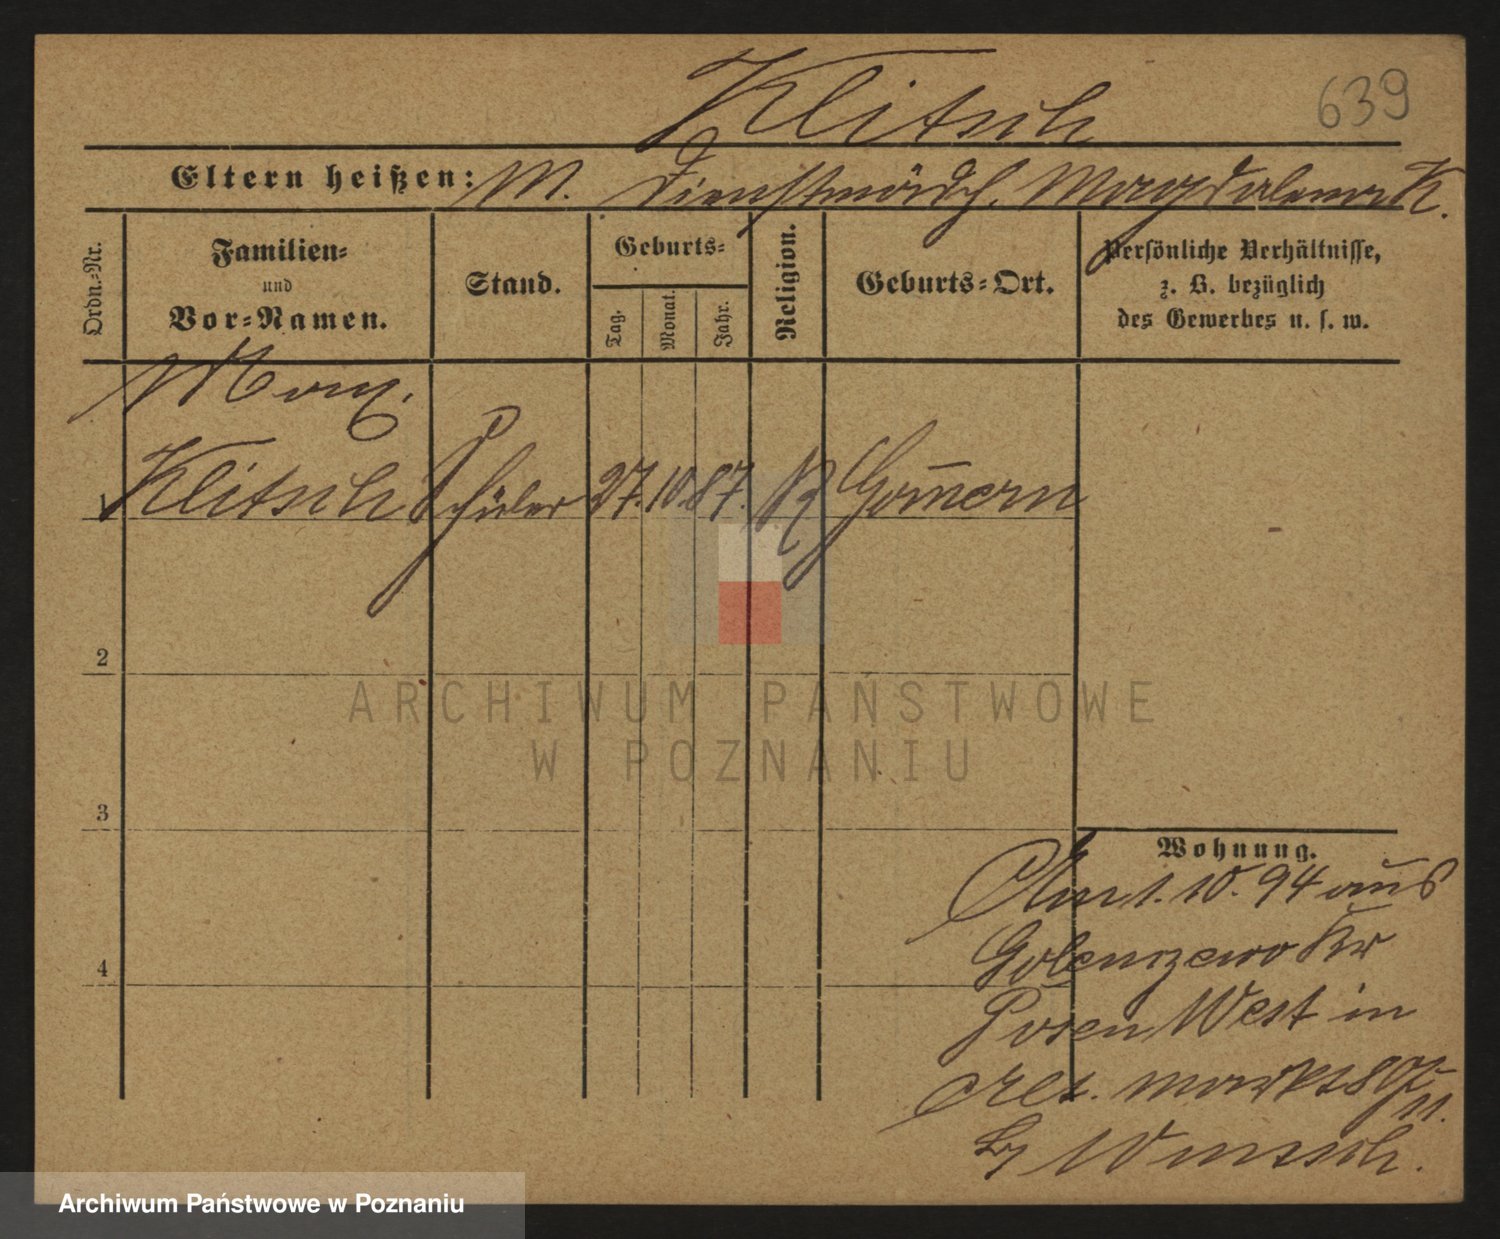 Klitsch
639
Eltern heißen: M. Dienstmädch. Magdalena K.
Ordn.-Nr.
Familien-
und
Vor-Namen.
Stand.
Geburts-
Tag.
Monat.
Jahr.
Religion.
Geburts-Ort.
Persönliche Verhältnisse,
z. B. bezüglich
des Gewerbes u. s. w.
Max.
1 Klitsch Schüler 27. 10. 87. Gom̄ern
2
3
4
Wohnung.
Am 1. 10. 94 aus
Golenczewo Kr
Posen West in
Alt. markt 89
II.
by Wunsch.
ARCHIWUM PAŃSTWOWE
W POZNANIU
Archiwum Państwowe w Poznaniu